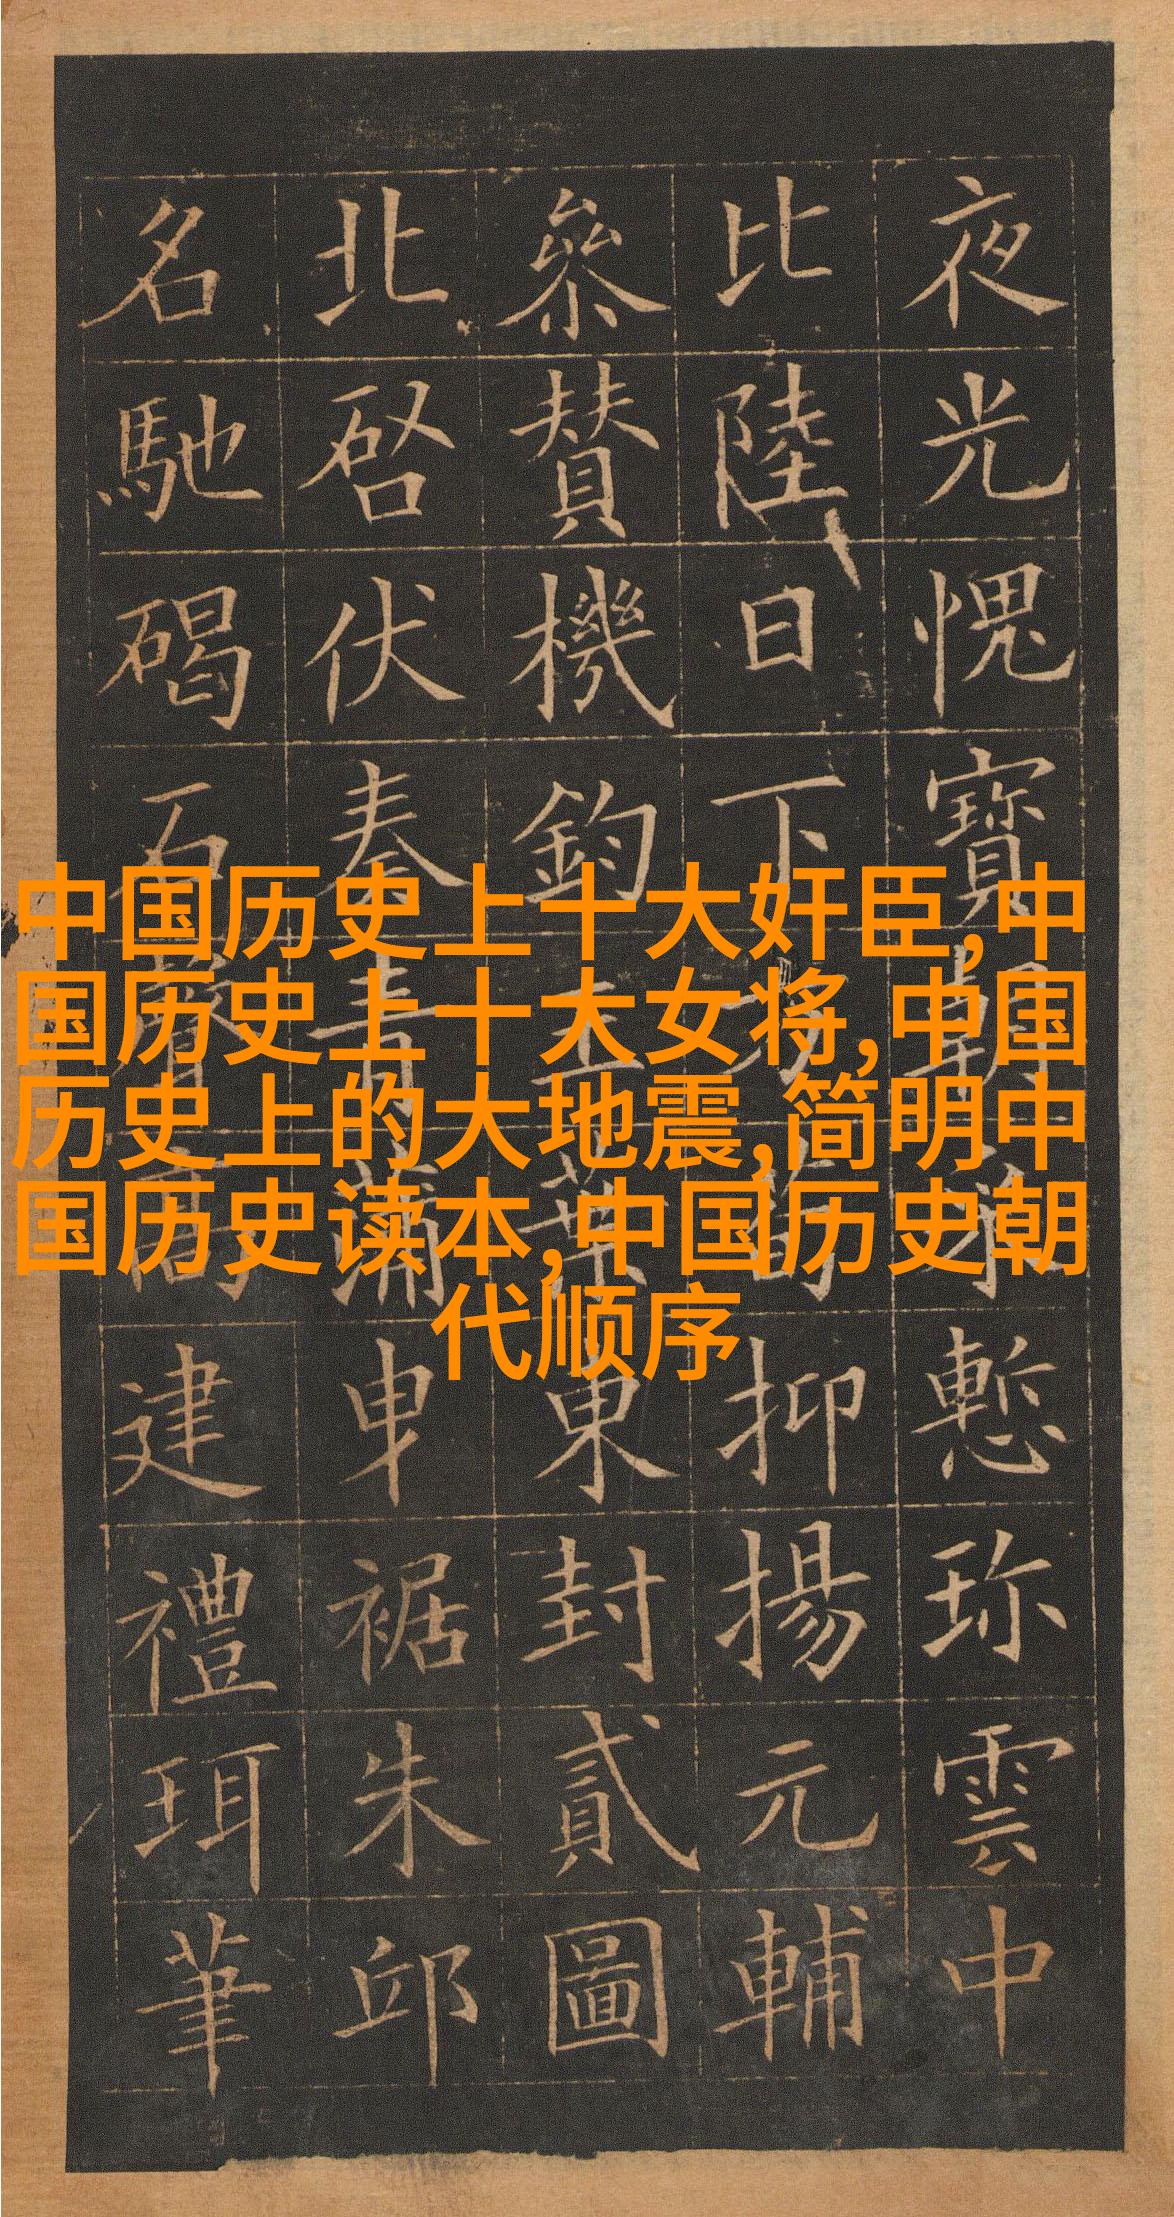 夜光愧寶慙珎雲中
比陸日下抑揚元輔
參賛機鈞東封貳圖
北啓伏奏青蒲曳裾朱邸
名馳碣石建禮珥筆
中国历史上十大奸臣,中
国历史上十大女将,中国
历史上的大地震,简明中
国历史读本,中国历史朝
代顺序